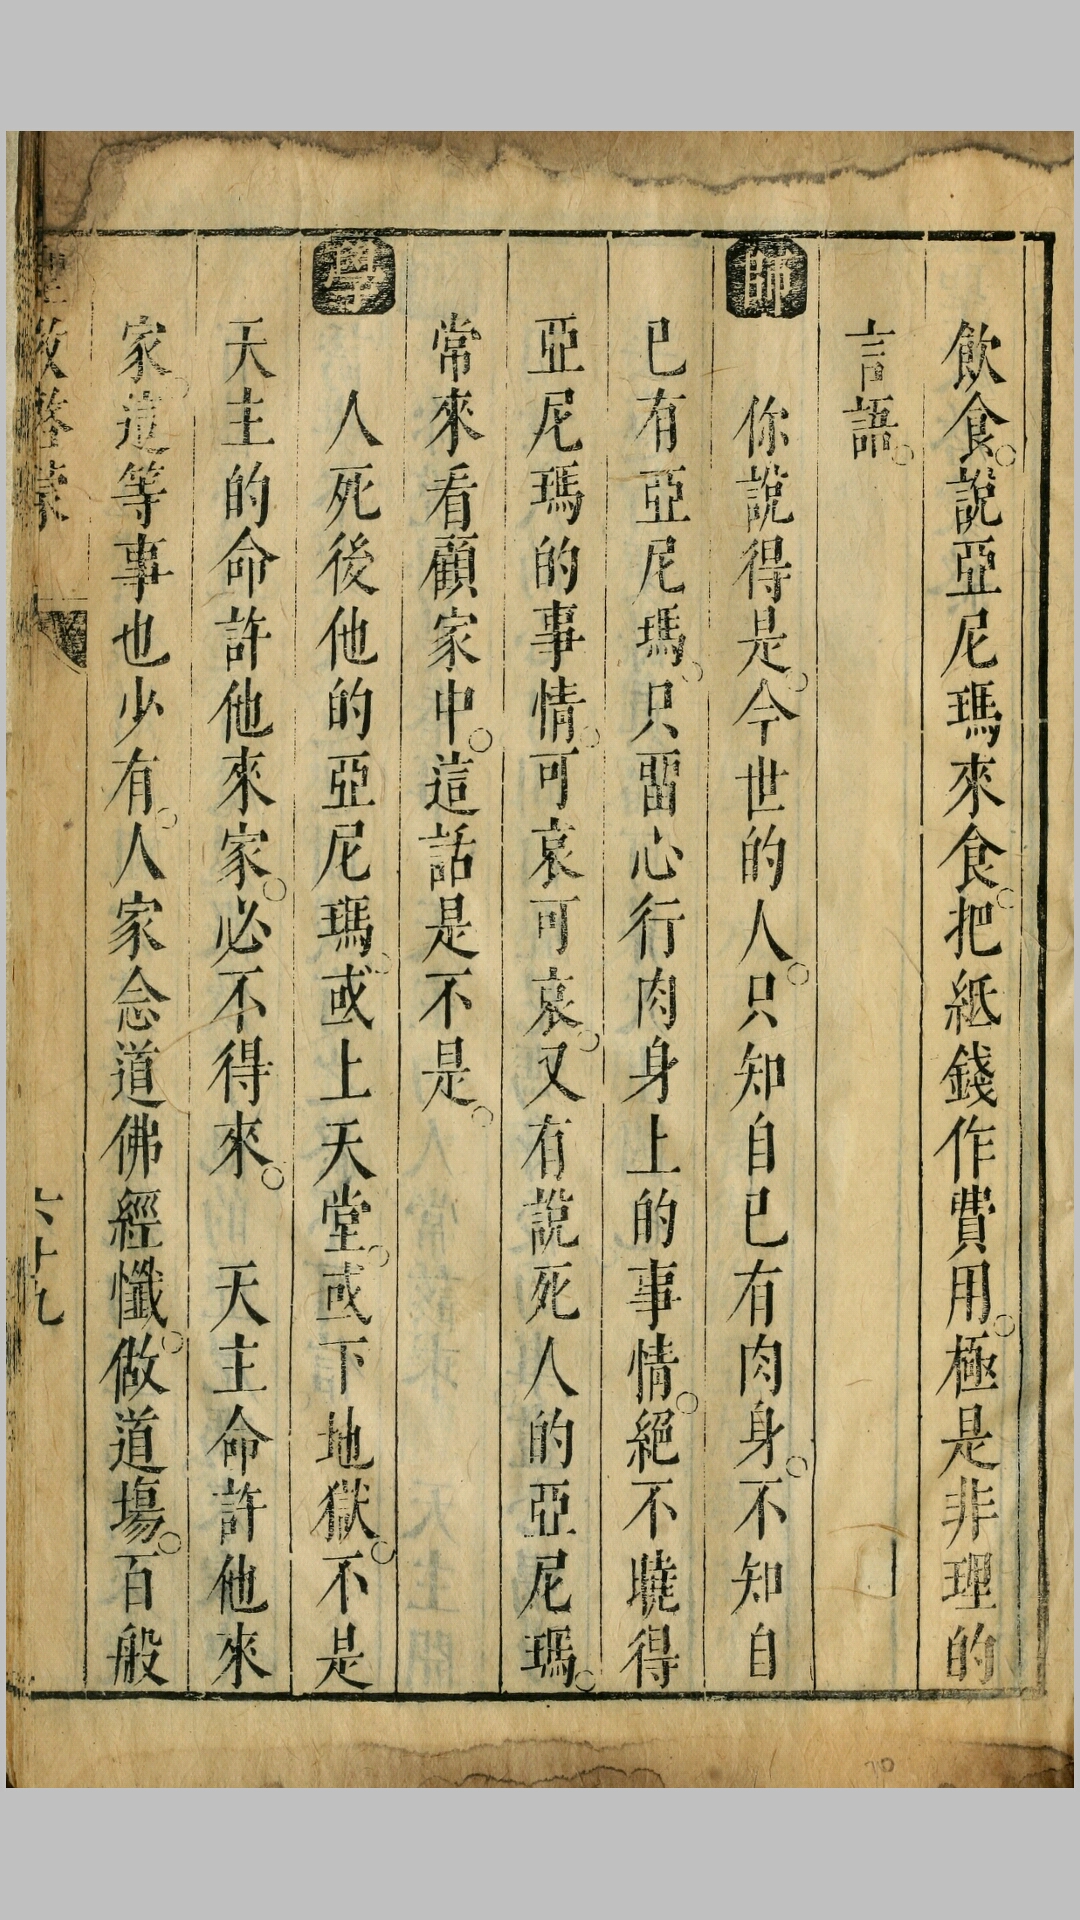 飲食。說亞尼瑪來食。把紙錢作費用。極是非理的
言語。
師
你說得是。今世的人。只知自已有肉身。不知自
已有亞尼瑪。只畱心行肉身上的事情。絕不曉得
亞尼瑪的事情。可哀可哀。又有說死人的亞尼瑪。
常來看顧家中。這話是不是。
學
人死後他的亞尼瑪。或上天堂。或下地獄。不是
天主的命許他來家。必不得來。 天主命許他來
家。這等事也少有。人家念道佛經懺。做道場。百般
教啓蒙
六十九